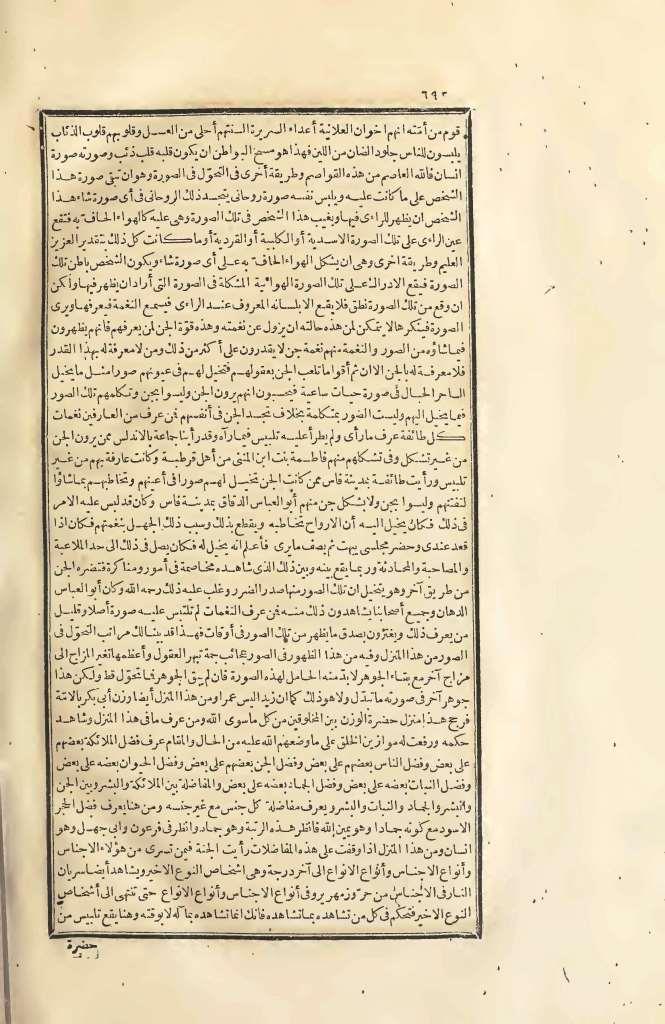 ٦٩٢
قوم من أمته انهم اخوان العلانية أعداء السريرة ألسنتهم أحلى من العسل وقلوبهم قلوب الذئاب
يلبسون للناس جلود الضان من اللين فهذا هو مسخ البواطن ان يكون قلبه قلب ذئب وصورته صورة
انسان فالله العاصم من هذه القواصم وطريقة أخرى فى التحوّل فى الصورة وهو ان تبقى صورة هذا
الشخص على ما كانت عليه ويلبس نفسه صورة روحانى يتجسد ذلك الروحانى فى أى صورة شاء هذا
الشخص ان يظهر للراءى فيها ويغيب هذا الشخص فى تلك الصورة وهى عليه كالهواء الحاف به فتقع
عين الراءى على تلك الصورة الاسدية أو الكلبية أو القردية أو ما كانت كل ذلك بتقدير العزيز
العليم وطريقة اخرى وهى ان يشكل الهواء الحاف به على أى صورة شاء ويكون الشخص باطن تلك
الصورة فيقع الادراك على تلك الصورة الهوائية المشكلة فى الصورة التى أراد ان يظهر فيها ولكن
ان وقع من تلك الصورة نطق فلا يقع الا بلسانه المعروف عند الراءى فيسمع النغمة فيعرفها ويرى
الصورة فينكرها لا يتمكن لمن هذه حالته ان يزول عن نغمته وهذه قوّة الجن لمن يعرفهم فانهم يظهرون
فيما شاؤه من الصور والنغمة منهم نغمة جن لا يقدرون على أكثر من ذلك ومن لا معرفة له بهذا القدر
فلا معرفة له بالجن الا ان ثم أقواما تلعب الجن بعقولهم فتخيل لهم فى عيونهم صورا مثل ما يخيل
الساحر الحبال فى صورة حيات ساعية فيحسبون انهم يرون الجن وليسوا بجن وتكلمهم تلك الصور
فيما يخيل اليهم وليست الصور بمتكلمة بخلاف تجسد الجن فى أنفسهم فمن عرف من العارفين نغمات
كل طائفة عرف ما رأى ولم يطرأ عليه تلبيس فيما رآه وقد رأينا جماعة بالاندلس ممن يرون الجن
من غير تشكل وفى تشكلهم منهم فاطمة بنت ابن المثنى من أهل قرطبة وكانت عارفة بهم من غير
تلبيس ورأيت طائفة بمدينة فاس ممن كانت الجن تخيل لهم صورا فى أعينهم وتخاطبهم بما شاؤا
لتفتنهم وليسوا بجن ولا بشكل جن منهم أبو العباس الدقاق بمدينة فاس وكان قد لبس عليه الامر
فى ذلك فكان يخيل اليه أن الارواح تخاطبه ويقطع بذلك وسبب ذلك الجهل بنغمتهم فكان اذا
قعد عندى وحضر مجلسى يبهت ثم يصف ما يرى فأعلم انه يخيل له فكان يصل فى ذلك الى حد الملاعبة
والمصاحبة والمحادثة وربما يقع بينه وبين ذلك الذى شاهده مخاصمة فى أمور ومناكرة فتضره الجن
من طريق آخر وهو يتخيل ان تلك الصور منها صدر الضرر وغلب عليه ذلك رحمه الله وكان أبو العباس
الدهان وجميع أصحابنا يشاهدون ذلك منه فمن عرف النغمات لم يلتبس عليه صورة أصلا وقليل
من يعرف ذلك ويغترّون بصدق ما يظهر من تلك الصور فى أوقات فهذا قد بينا لك مراتب التحوّل فى
الصور من هذا المنزل وفيه من هذا الظهور فى الصور عجائب جمة تبهر العقول وأعظمها تغير المزاج الى
مزاج آخر مع بقاء الجوهر لا بدّ منه الحامل لهذه الصورة فان لم يبق الجوهر فما تحوّل قط ولكن هذا
جوهر آخر فى صورته ما تبدّل ولا هو ذلك كما ان زيدا ليس عمرا ومن هذا المنزل أيضا وزن أبى بكر بالامّة
فرجح هذا منزل حضرة الوزن بين المخلوقين من كل ما سوى الله ومن عرف ما فى هذا المنزل وشاهد
حكمه ورفعت له موازين الخلق على ما وضعهم الله عليه من الحال والمقام عرف فضل الملائكة بعضهم
على بعض وفضل الناس بعضهم على بعض وفضل الجن بعضهم على بعض وفضل الحيوان بعضه على بعض
وفضل النبات بعضه على بعض وفضل الجماد بعضه على بعض والمفاضلة بين الملائكة والبشر وبين الجن
والبشر والجماد والنبات والبشر ويعرف مفاضلة كل جنس مع غير جنسه ومن هنا يعرف فضل الحجر
الاسود مع كونه جمادا وهو يمين الله فانظر هذه الرتبة وهو جماد وانظر فى فرعون وابى جهل وهو
انسان ومن هذا المنزل اذا وقفت على هذه المفاضلات رأيت الجنة فيمن تسرى من هؤلاء الاجناس
وأنواع الاجناس وأنواع الانواع الى آخر درجة وهى اشخاص النوع الاخير ويشاهد أيضا سريان
النار فى الاجناس من حرّ وزمهرير وفى أنواع الاجناس وأنواع الانواع حتى تنتهى الى أشخاص
النوع الاخير فتحكم فى كل من تشاهده بما تشاهده فانك انما تشاهده بمآله لا بوقته وهنا يقع تلبيس من
حضرة